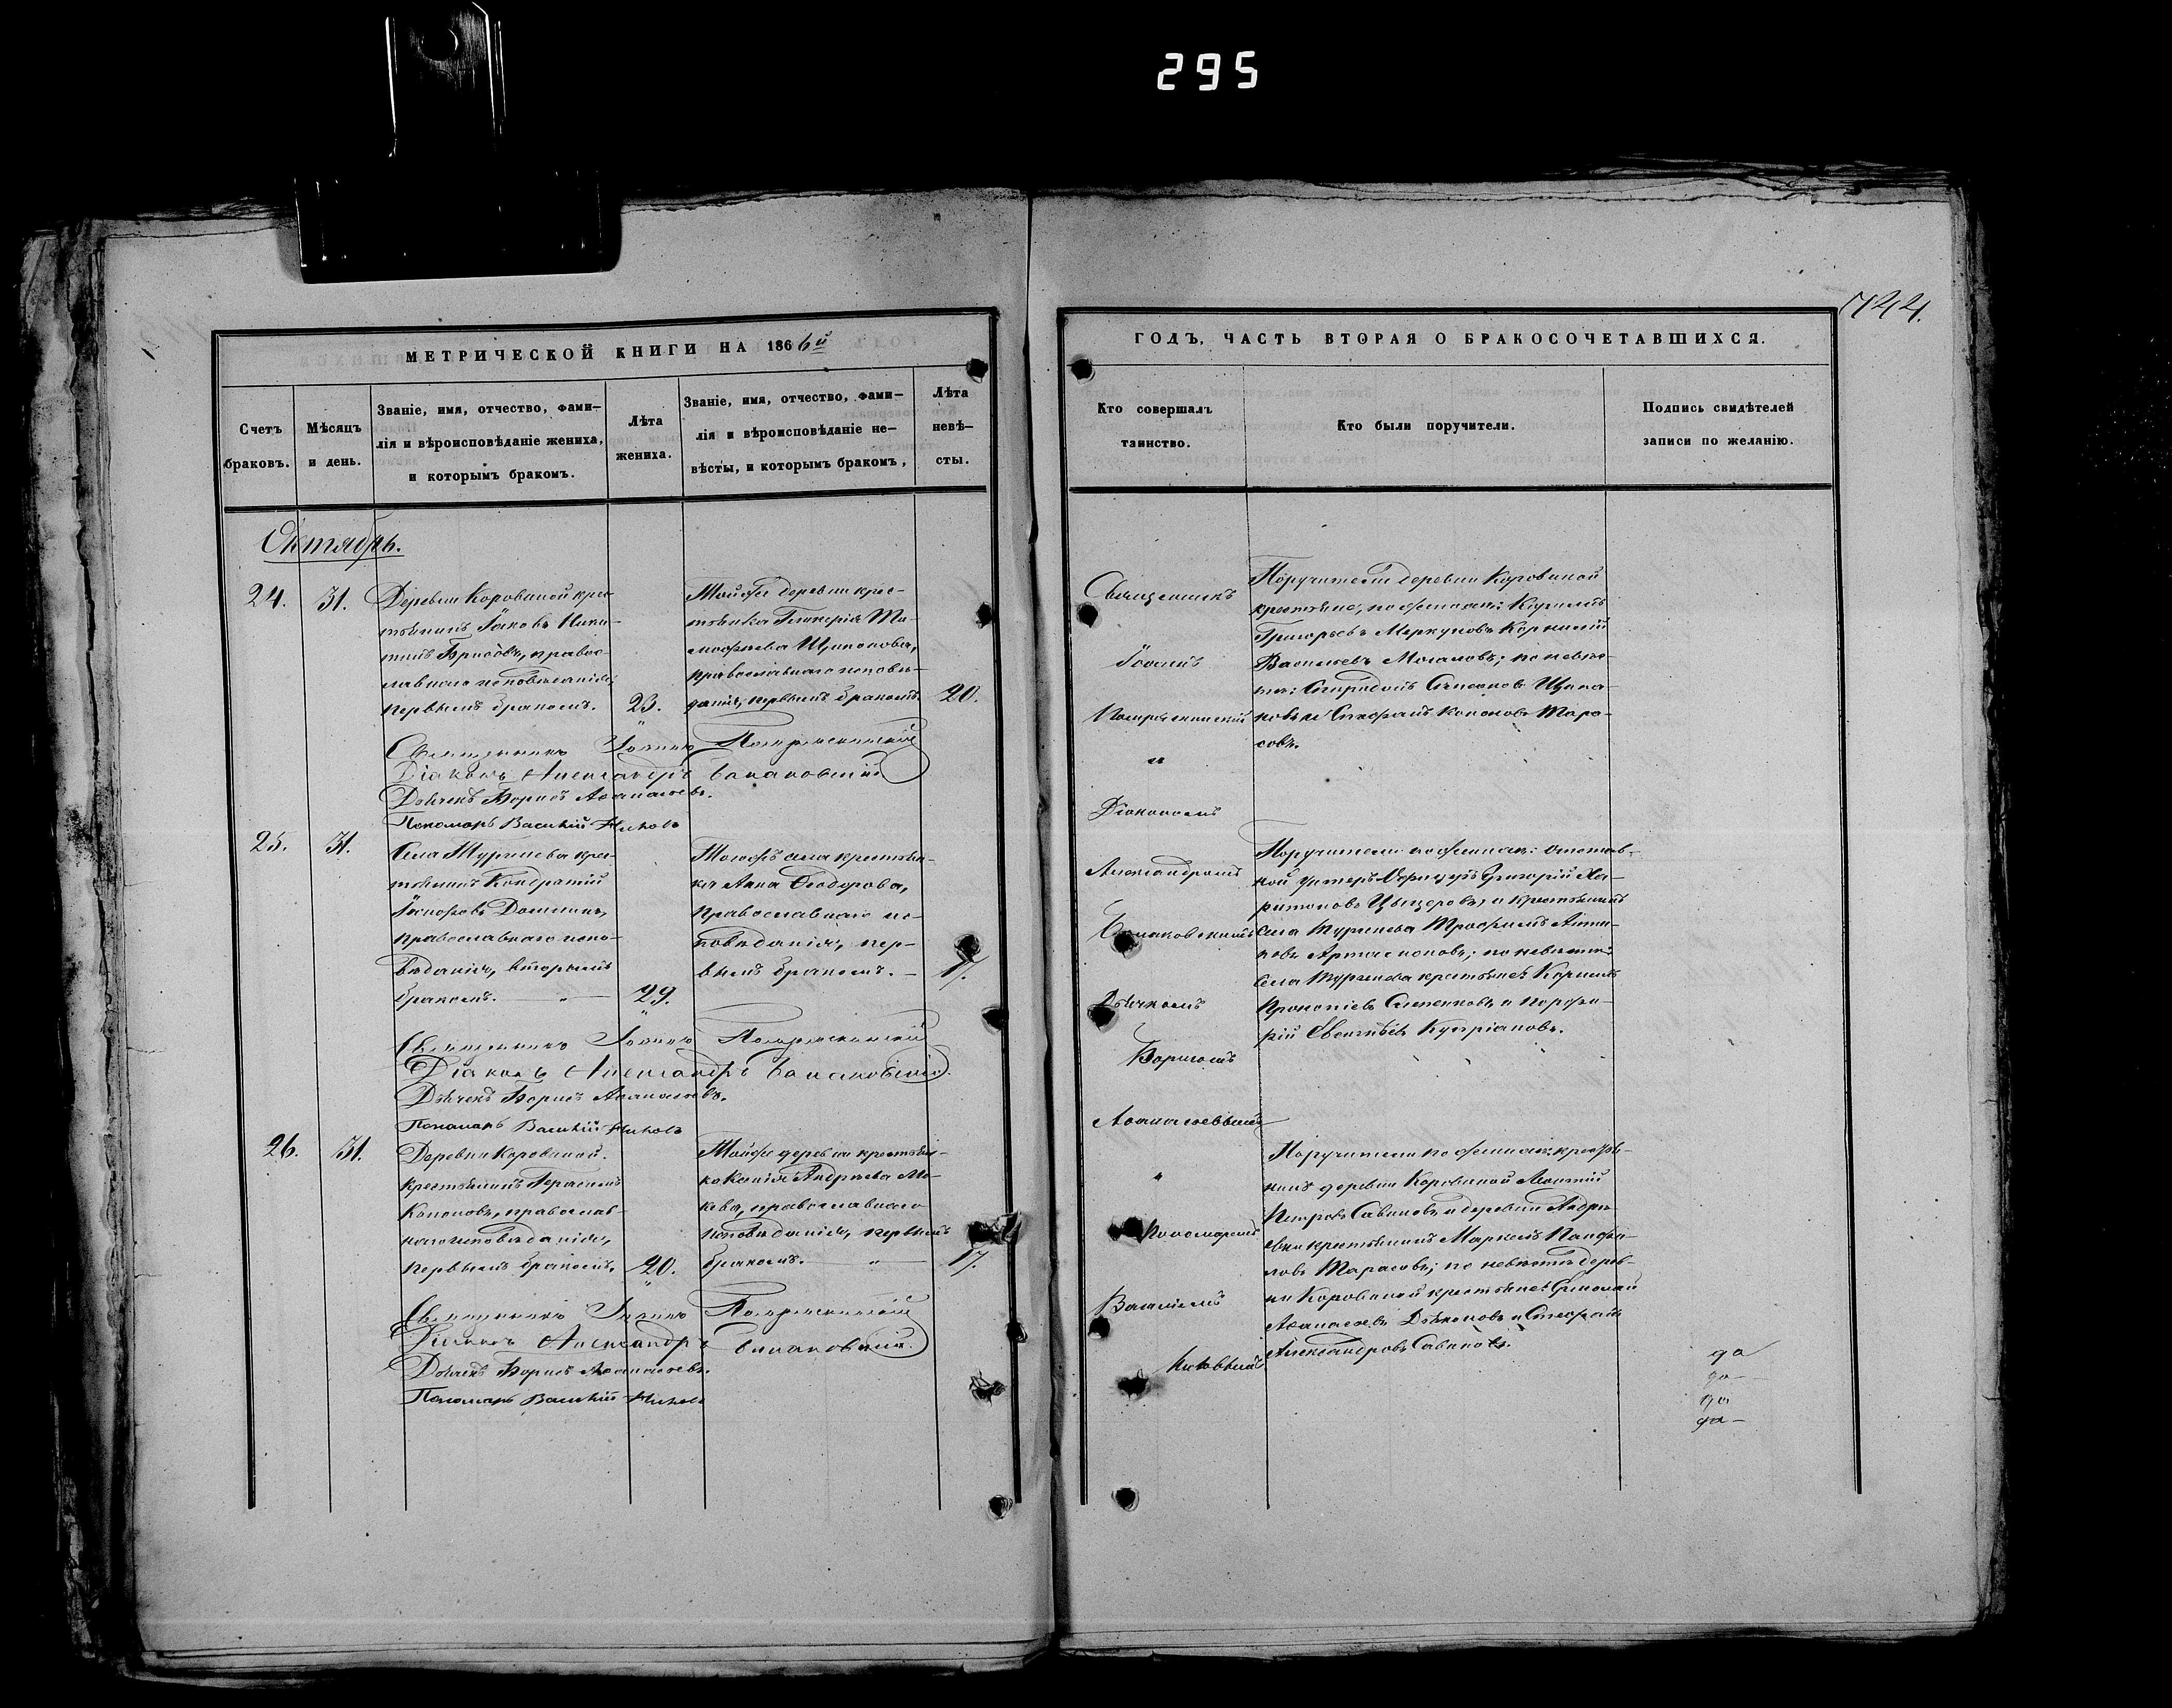 295
744.
МЕТРИЧЕСКОЙ КНИГИ НА 1866й
Счетъ
браковъ.
Мѣсяцъ
и день.
Званіе, имя, отчество, фами-
лія и вѣроисповѣданіе жениха,
и которымъ бракомъ.
Лѣта
жениха.
Званіе, имя, отчество, фами-
лія и вѣроисповѣданіе не-
вѣсты, и которымъ бракомъ,
Лѣта
невѣ-
сты.
Октябрь.
24.
31.
Деревни Коровиной крес-
тьянинъ Іаковъ Ники-
тинъ, правос-
лавнаго исповѣданія,
первымъ бракомъ.
23.
Тойже деревни крес-
тьянка Гликерія Ти-
мофѣева
православнаго исповѣ-
данія, первымъ бракомъ.
20.
Священникъ Іоаннъ
Діаконъ Александръ
Дьячекъ Борисъ Аѳанасьевъ.
Пономарь Василій
25.
31.
Села Тургнева крес-
тьянинъ Кондратій
Іосифовъ
православнаго испо-
вѣданія, вторымъ
бракомъ.
29.
Тогожъ села крестьян-
ка Анна Ѳеодорова,
православнаго ис-
повѣданія, пер-
вымъ бракомъ. —
17.
Священникъ Іоаннъ
Діаконъ Александръ
Дьячекъ Борисъ Аѳанасьевъ.
Пономарь Василій
26.
31.
Деревни Коровиной.
крестьянинъ Герасимъ
Кононовъ, православ-
наго исповѣданія,
первымъ бракомъ.
20.
Тойже деревни крестьян-
ка Ксенія Андреева Мо-
кѣева, православнаго
исповѣданія, первымъ
бракомъ.
17.
Священникъ Іоаннъ
Діаконъ Александръ
Дьячекъ Борисъ Аѳанасьевъ.
Пономарь Василій
ГОДЪ, ЧАСТЬ ВТОРАЯ О БРАКОСОЧЕТАВШИХСЯ.
Кто совершалъ
таинство.
Кто были поручители.
Подпись свидѣтелей
записи по желанію.
Священникъ
Іоаннъ
Діакономъ
Александромъ
Дьячкомъ
Борисомъ
Аѳанасьевымъ
Пономаремъ
Василіемъ
Поручители деревни Коровиной
крестьяне, по женихѣ: Кирилъ
Григорьевъ Меркуловъ Корнилій
Васильевъ; по невѣс-
тѣ: Спиридонъ Симеоновъ
и Стефанъ Кононовъ Тара-
совъ.
Поручители по женихѣ: отстав-
ной унтеръ-офицеръ Григорій Ха-
ритоновъ, и крестьянинъ
села Тургнева Трофимъ Анти-
повъ; по невѣстѣ:
села Тургнева крестьяне: Корнилъ
Прокопіевъ и Порфи-
рій Евсигнѣевъ Купріановъ.
Поручители по женихѣ: крестья-
нинъ деревни Коровиной Леонтій
Петровъ Савиновъ и деревни Андре-
евки крестьянинъ Маркелъ Панфи-
ловъ Тарасовъ; по невѣстѣ дерев-
ни Коровиной крестьяне: Ермолай
Аѳанасьевъ Дьяконовъ и Стефанъ
Александровъ Савиновъ.
да
да
да
да